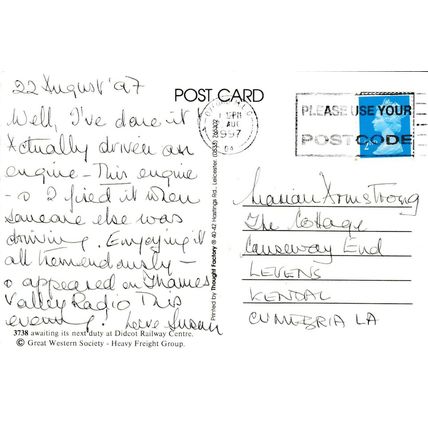 22 August '97
POST CARD
Well, I've done it!
Actually driven an
engine - This engine
- & I fired it when
someone else was
driving. Enjoying it
all tremendously -
& appeared on Thames
Valley Radio This
evening. Love Susan
3738 awaiting its next duty at Didcot Railway Centre.
© Great Western Society - Heavy Freight Group.
Printed by Thought Factory ® 40-42 Hastings Rd. Leicester
PM
AUG
1997
PLEASE USE YOUR
POSTCODE
2
Marian Armstrong
The Cottage
Causeway End
LEVENS
KENDAL
CUMBRIA LA